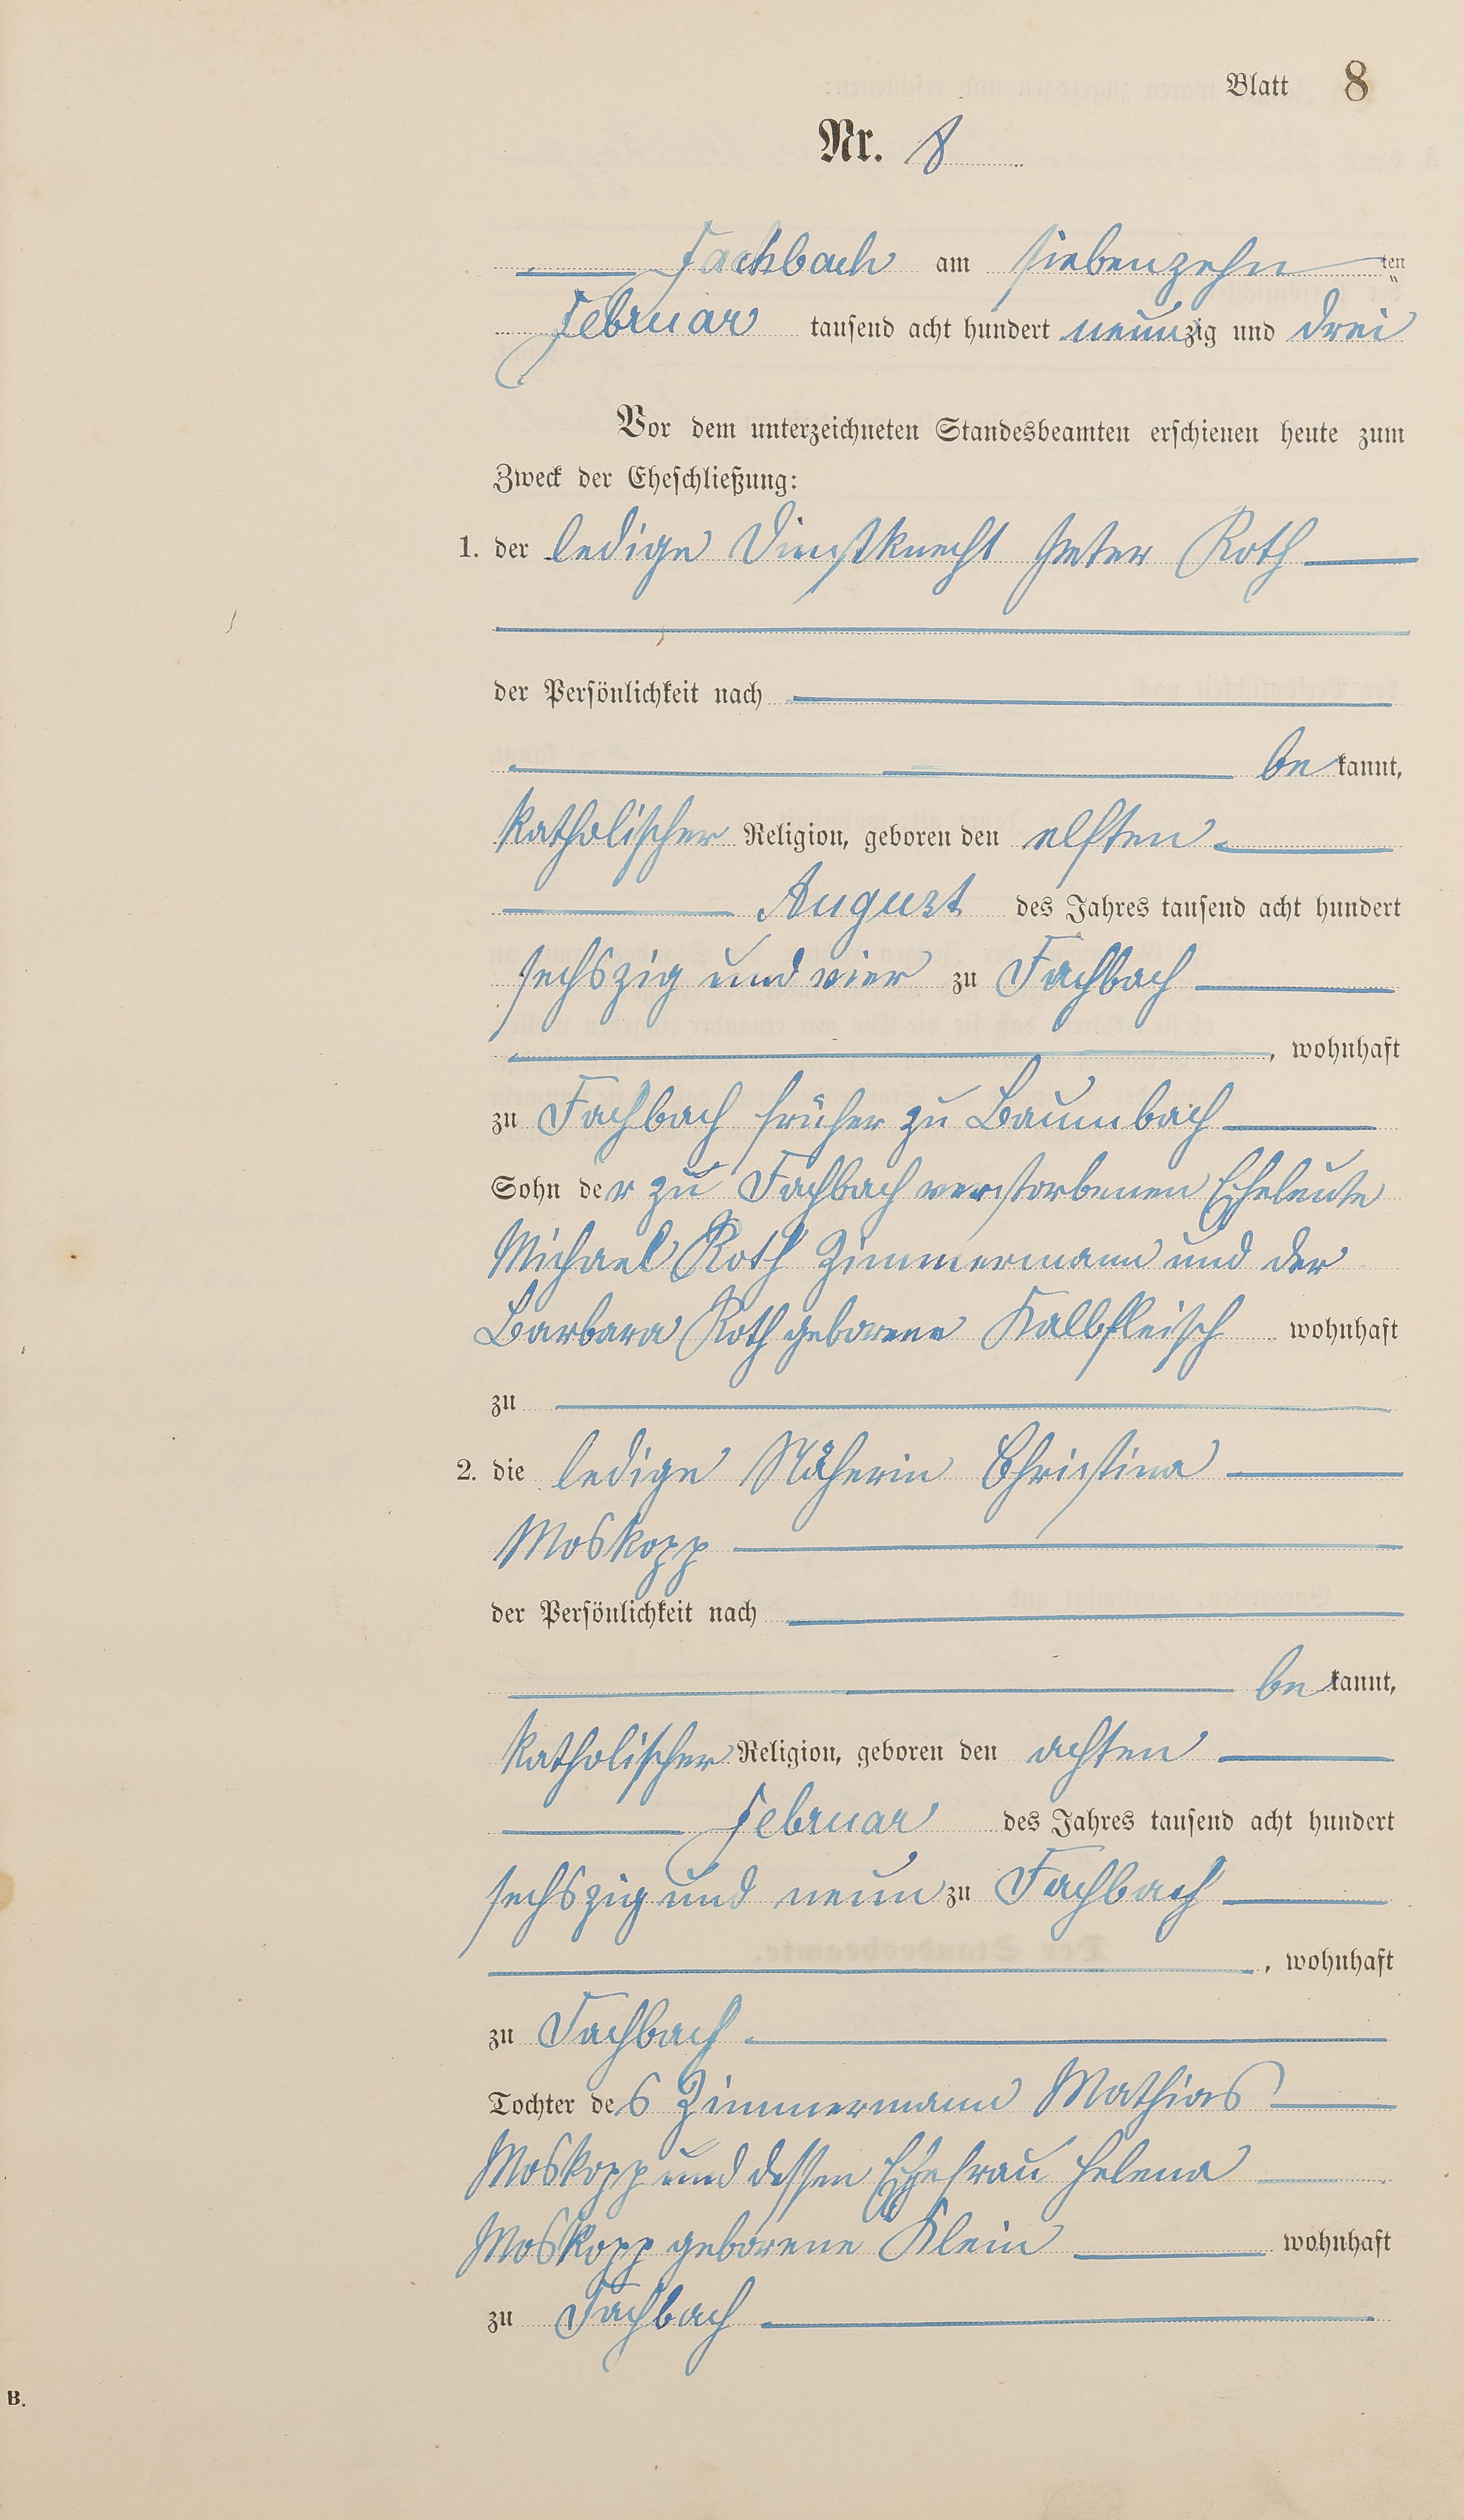 Blatt 8
Nr. 8
Fachbach am siebenzehn ten
Februar tausend acht hundert neunzig und drei
Vor dem unterzeichneten Standesbeamten erschienen heute zum
Zweck der Eheschließung:
1. der ledige Dienstknecht Peter Roth
der Persönlichkeit nach
be kannt,
katholischer Religion, geboren den elften
August des Jahres tausend acht hundert
sechszig und vier zu Fachbach
, wohnhaft
zu Fachbach früher zu Baumbach
Sohn der zu Fachbach verstorbenen Eheleute
Michael Roth Zimmermann und der
Barbara Roth geborene Kalbfleisch wohnhaft
zu
2. die ledige Näherin Christina
Moskopp
der Persönlichkeit nach
be kannt,
katholischer Religion, geboren den achten
Februar des Jahres tausend acht hundert
sechszig und neun zu Fachbach
, wohnhaft
zu Fachbach
Tochter des Zimmermann Mathias
Moskopp und dessen Ehefrau Helena
Moskopp geborene Klein wohnhaft
zu Fachbach
B.